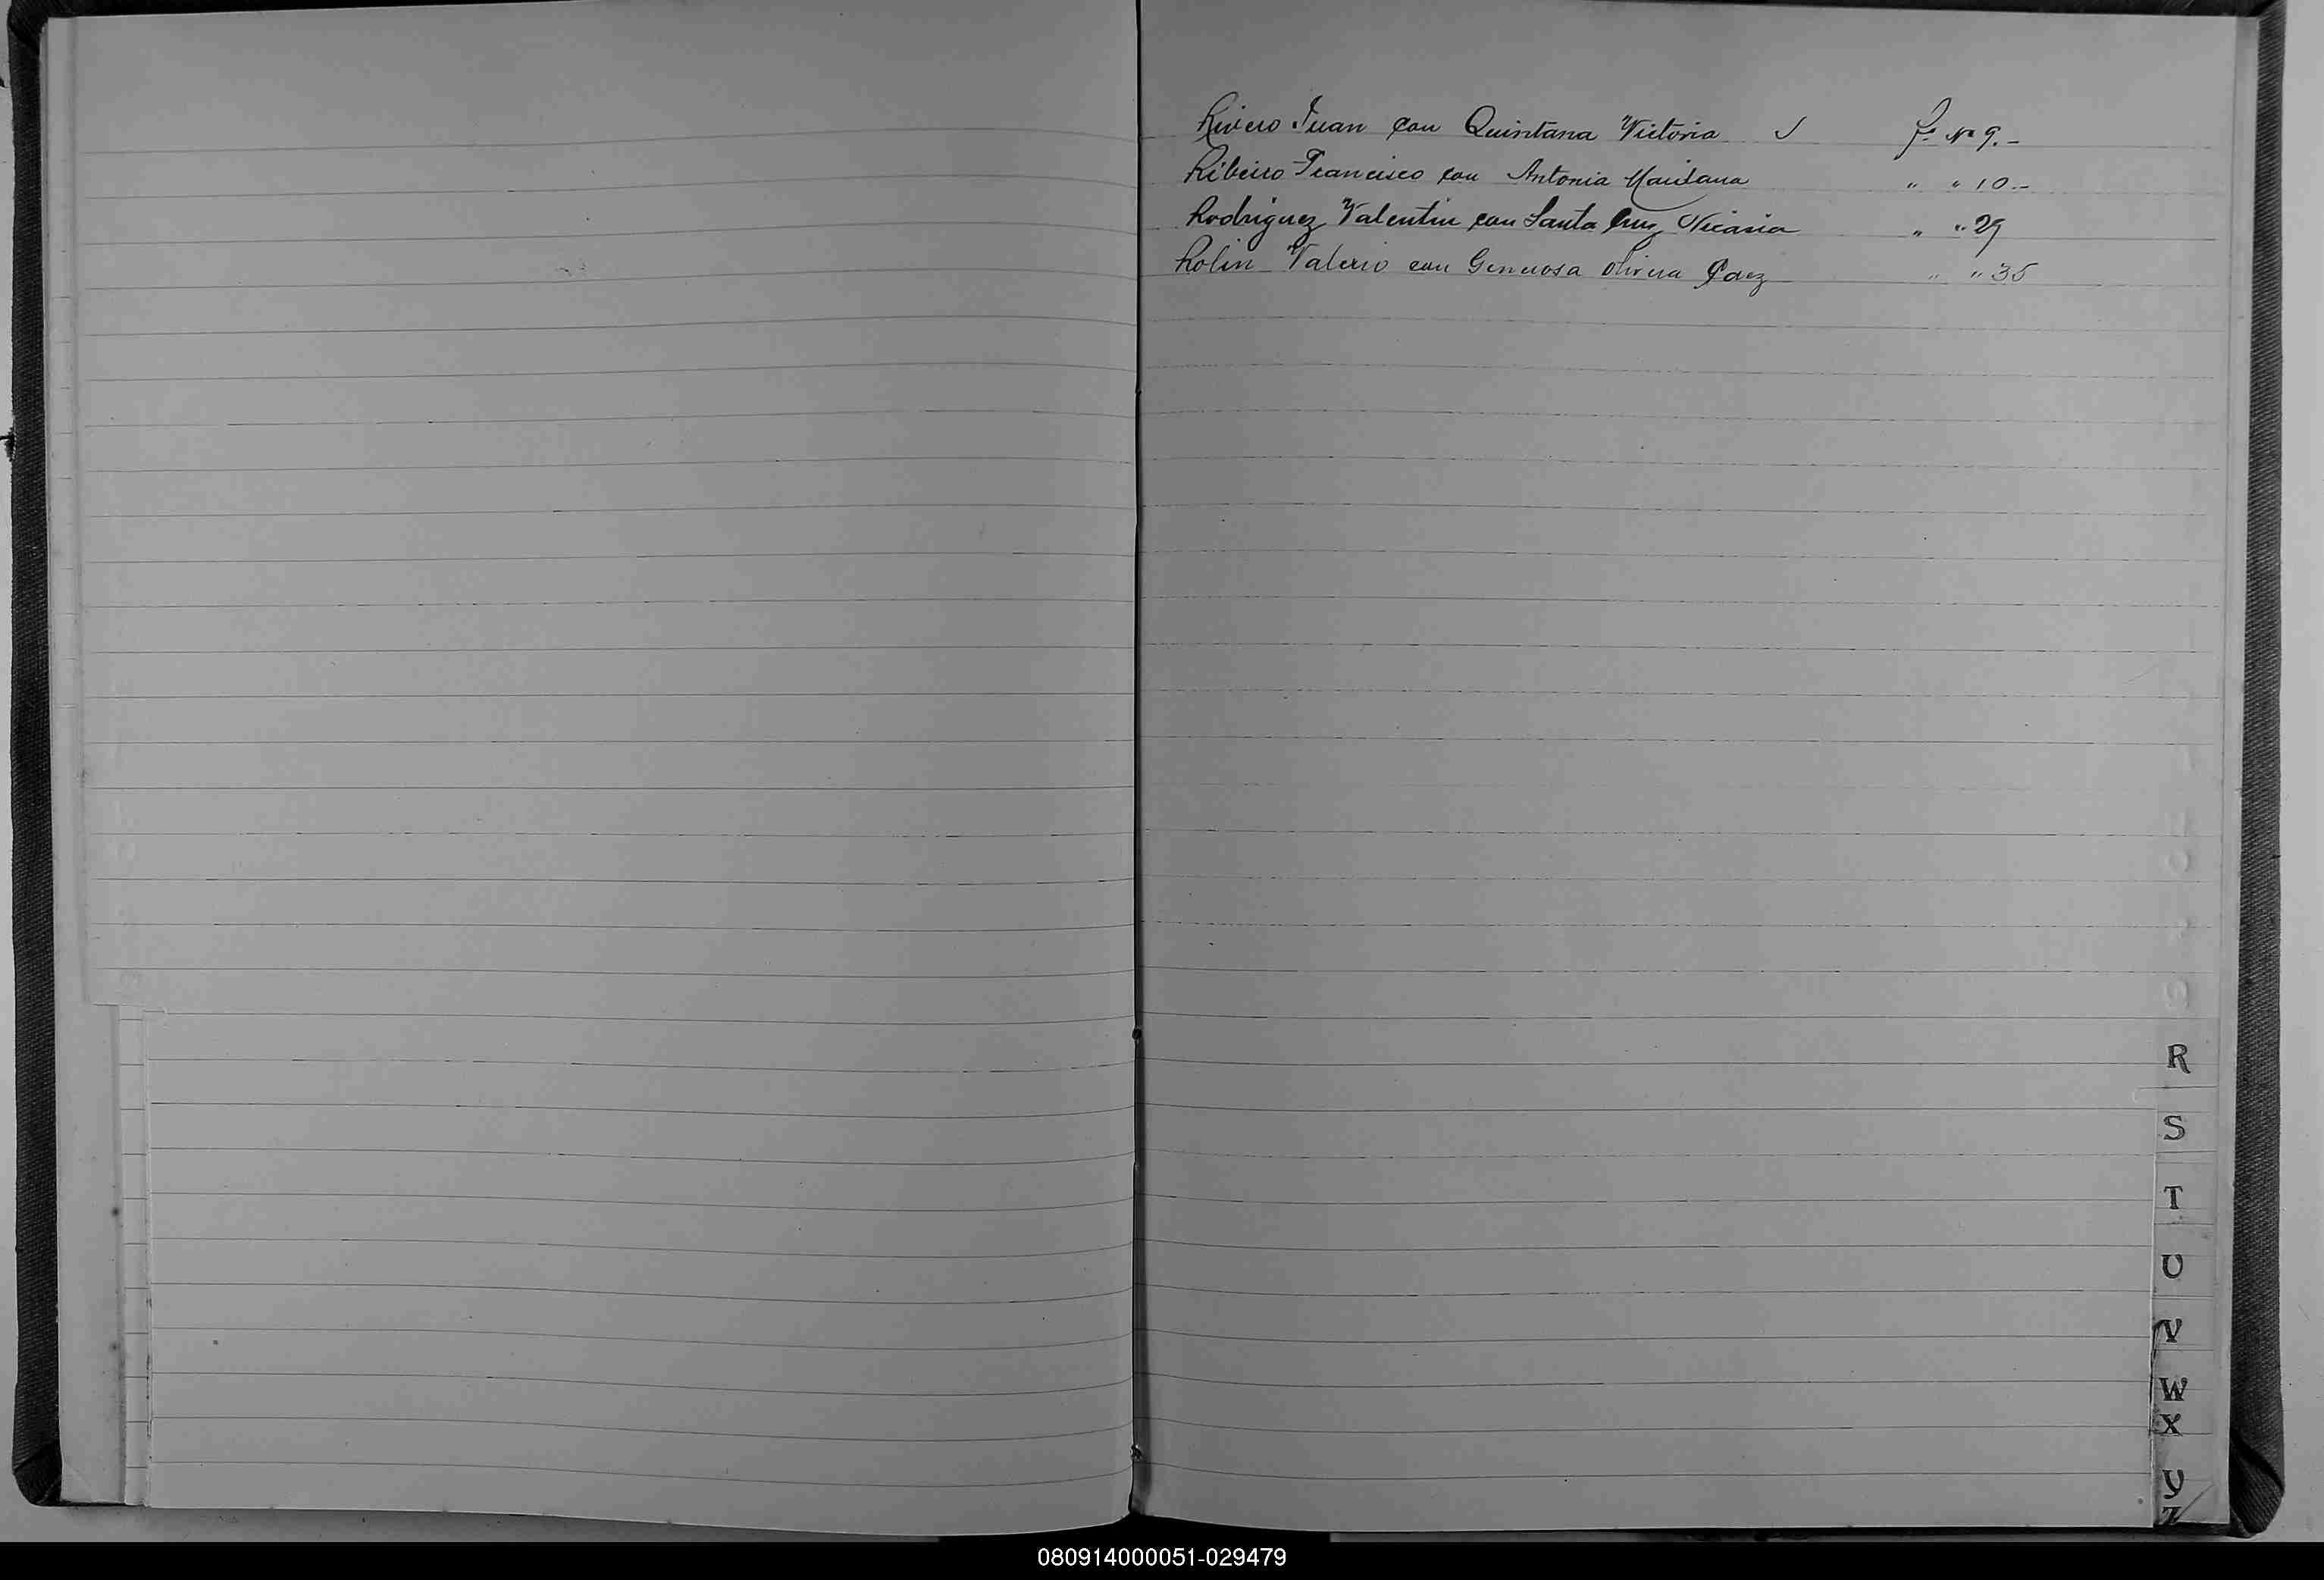 Rivero Juan con Quintana Victoria √ Fo No 9.-
Ribeiro Francisco con Antonia " " 10.-
Rodriguez Valentin con Santa Cruz Nicasia " " 29
Rolin Valerio con Generosa Olivera Paez " " 35
R
S
T
U
V
W
X
Y
Z
080914000051-029479